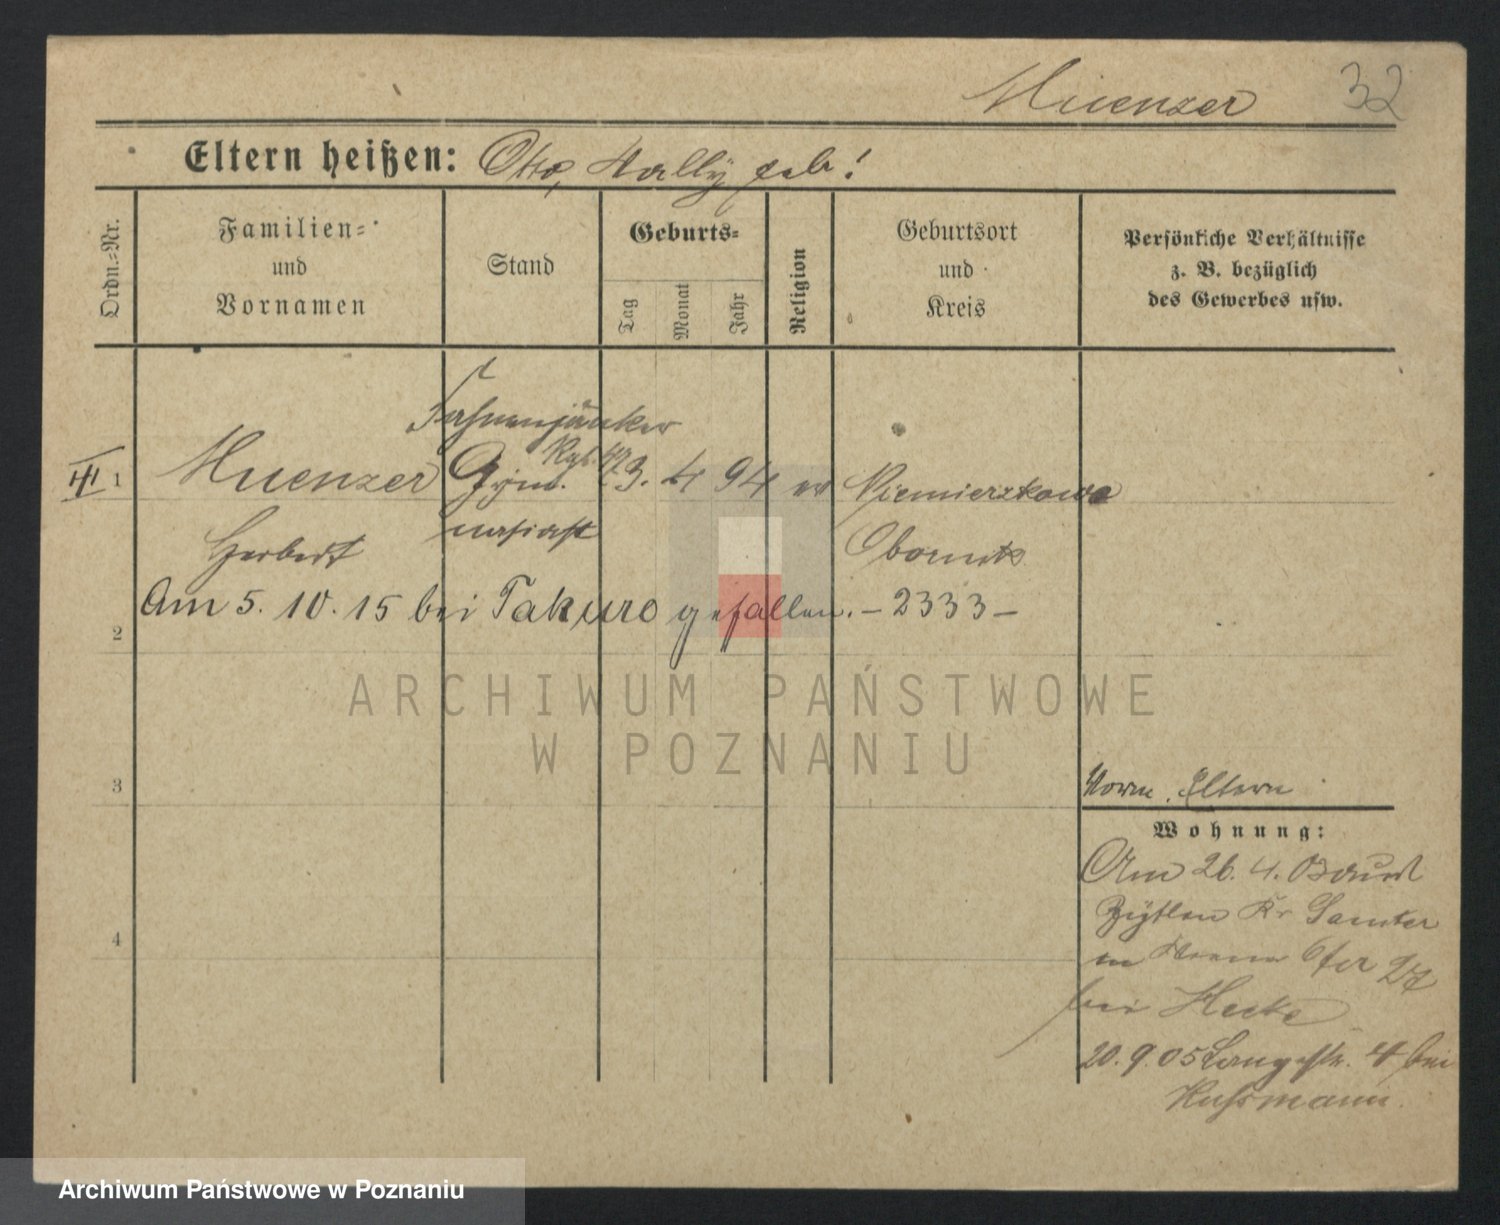 Muenzer 32
Eltern heißen: Otto, Wally geb!
Ordn.=Nr.
Familien=
und
Vornamen
Stand
Geburts=
Tag
Monat
Jahr
Religion
Geburtsort
und
Kreis
Persönliche Verhältnisse
z. B. bezüglich
des Gewerbes usw.
Fahnenjunker
Rgt. 47
1 Muenzer Gym- 3. 4 94 ev Niemierzkowo
Herbert nasiast Obornik
Am 5. 10. 15 bei Takuro gefallen. – 2333 –
2
3
4
Eltern
Wohnung:
Am 26. 4.
Kr Samter
in 27
bei Hecke
20. 9. 05 Langestr. 4 bei
Hussmann.
ARCHIWUM PAŃSTWOWE
W POZNANIU
Archiwum Państwowe w Poznaniu